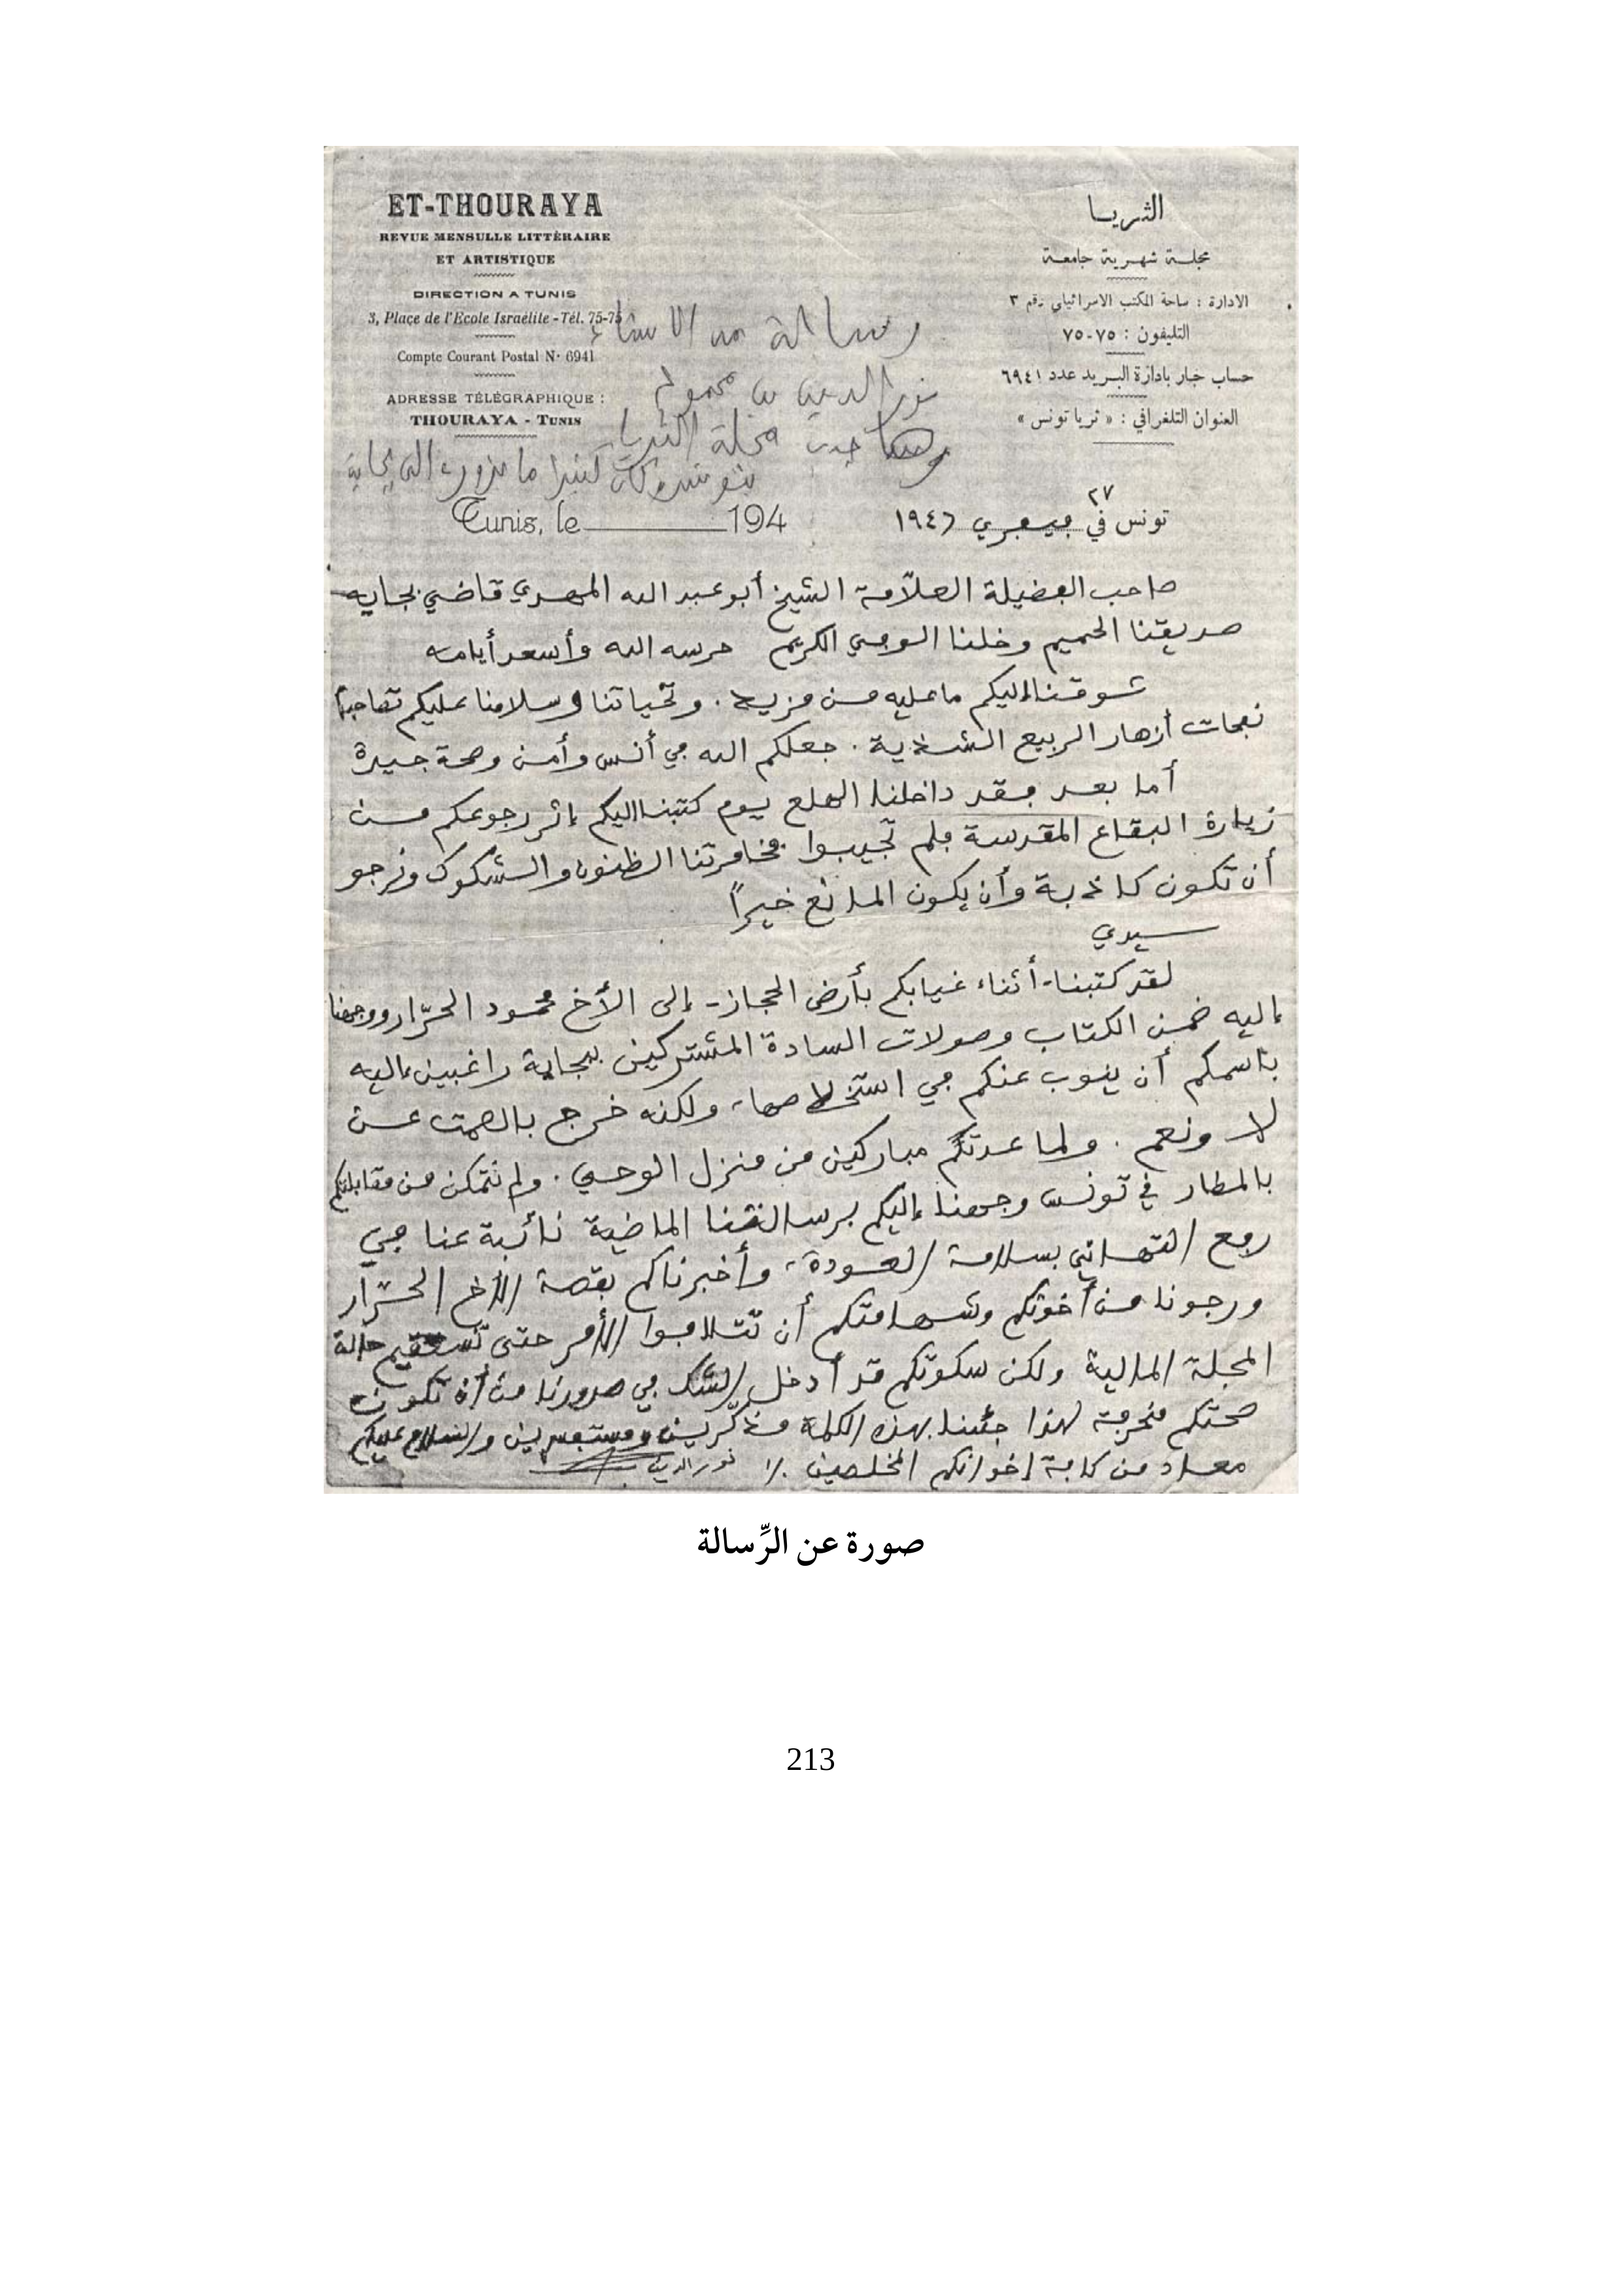 ET-THOURAYA
REVUE MENSULLE LITTÉRAIRE
ET ARTISTIQUE
DIRECTION A TUNIS
3, Place de l'Ecole Israélite - Tél. 75-75
Compte Courant Postal N· 6941
ADRESSE TÉLÉGRAPHIQUE :
THOURAYA - TUNIS
الثريا
مجلة شهرية جامعة
الادارة : ساحة المكتب الاسرائيلي رقم ٣
التليفون : ٧٥-٧٥
حساب جار بادارة البريد عدد ٦٩٤١
العنوان التلغرافي : « ثريا تونس »
رسالة من الاستاذ
نور الدين بن محمود
صاحب مجلة الثريا
بتونس وكان كثيرا ما يزور الى بجاية
Tunis, le 194
تونس في ٢٧ فيفري ١٩٤٦
صاحب الفضيلة العلّامة الشيخ أبو عبد الله المهدي قاضي بجاية
صديقنا الحميم وخلنا الوفي الكريم حرسه الله وأسعد أيامه
شوقنا إليكم ما عليه من مزيد . وتحياتنا وسلامنا عليكم تصاحبها
نفحات أزهار الربيع الشذية . جعلكم الله في أنس وأمن وصحة جيدة
أما بعد فقد داخلنا الهلع يوم كتبنا اليكم إثر رجوعكم من
زيارة البقاع المقدسة فلم تجيبوا فخامرتنا الظنون والشكوك ونرجو
أن تكون كاذبة وأن يكون المانع خيراً
سيدي
لقد كتبنا - أثناء غيابكم بأرض الحجاز - إلى الأخ محمود الحرّار ووجهنا
إليه ضمن الكتاب وصولات السادة المشتركين ببجاية راغبين إليه
باسمكم أن ينوب عنكم في استخلاصها، ولكنه خرج بالصمت عن
لا ونعم . ولما عدتكم مباركين من منزل الوحي . ولم نتمكن من مقابلتكم
بالمطار في تونس وجهنا إليكم برسالتنا الماضية نائبة عنا في
رفع التهاني بسلامة العودة، وأخبرناكم بقصة الأخ الحرّار
ورجونا من أخوتكم وشهامتكم أن تتلافوا الأمر حتى تستقيم حالة
المجلة المالية ولكن سكوتكم قد أدخل الشك في صدورنا من أن تكون
صحتكم منحرفة لهذا جئنا بهذه الكلمة مذكّرين ومستفسرين والسلام عليكم
معاد من كافة إخوانكم المخلصين ٪ نور الدين
صورة عن الرِّسالة
213